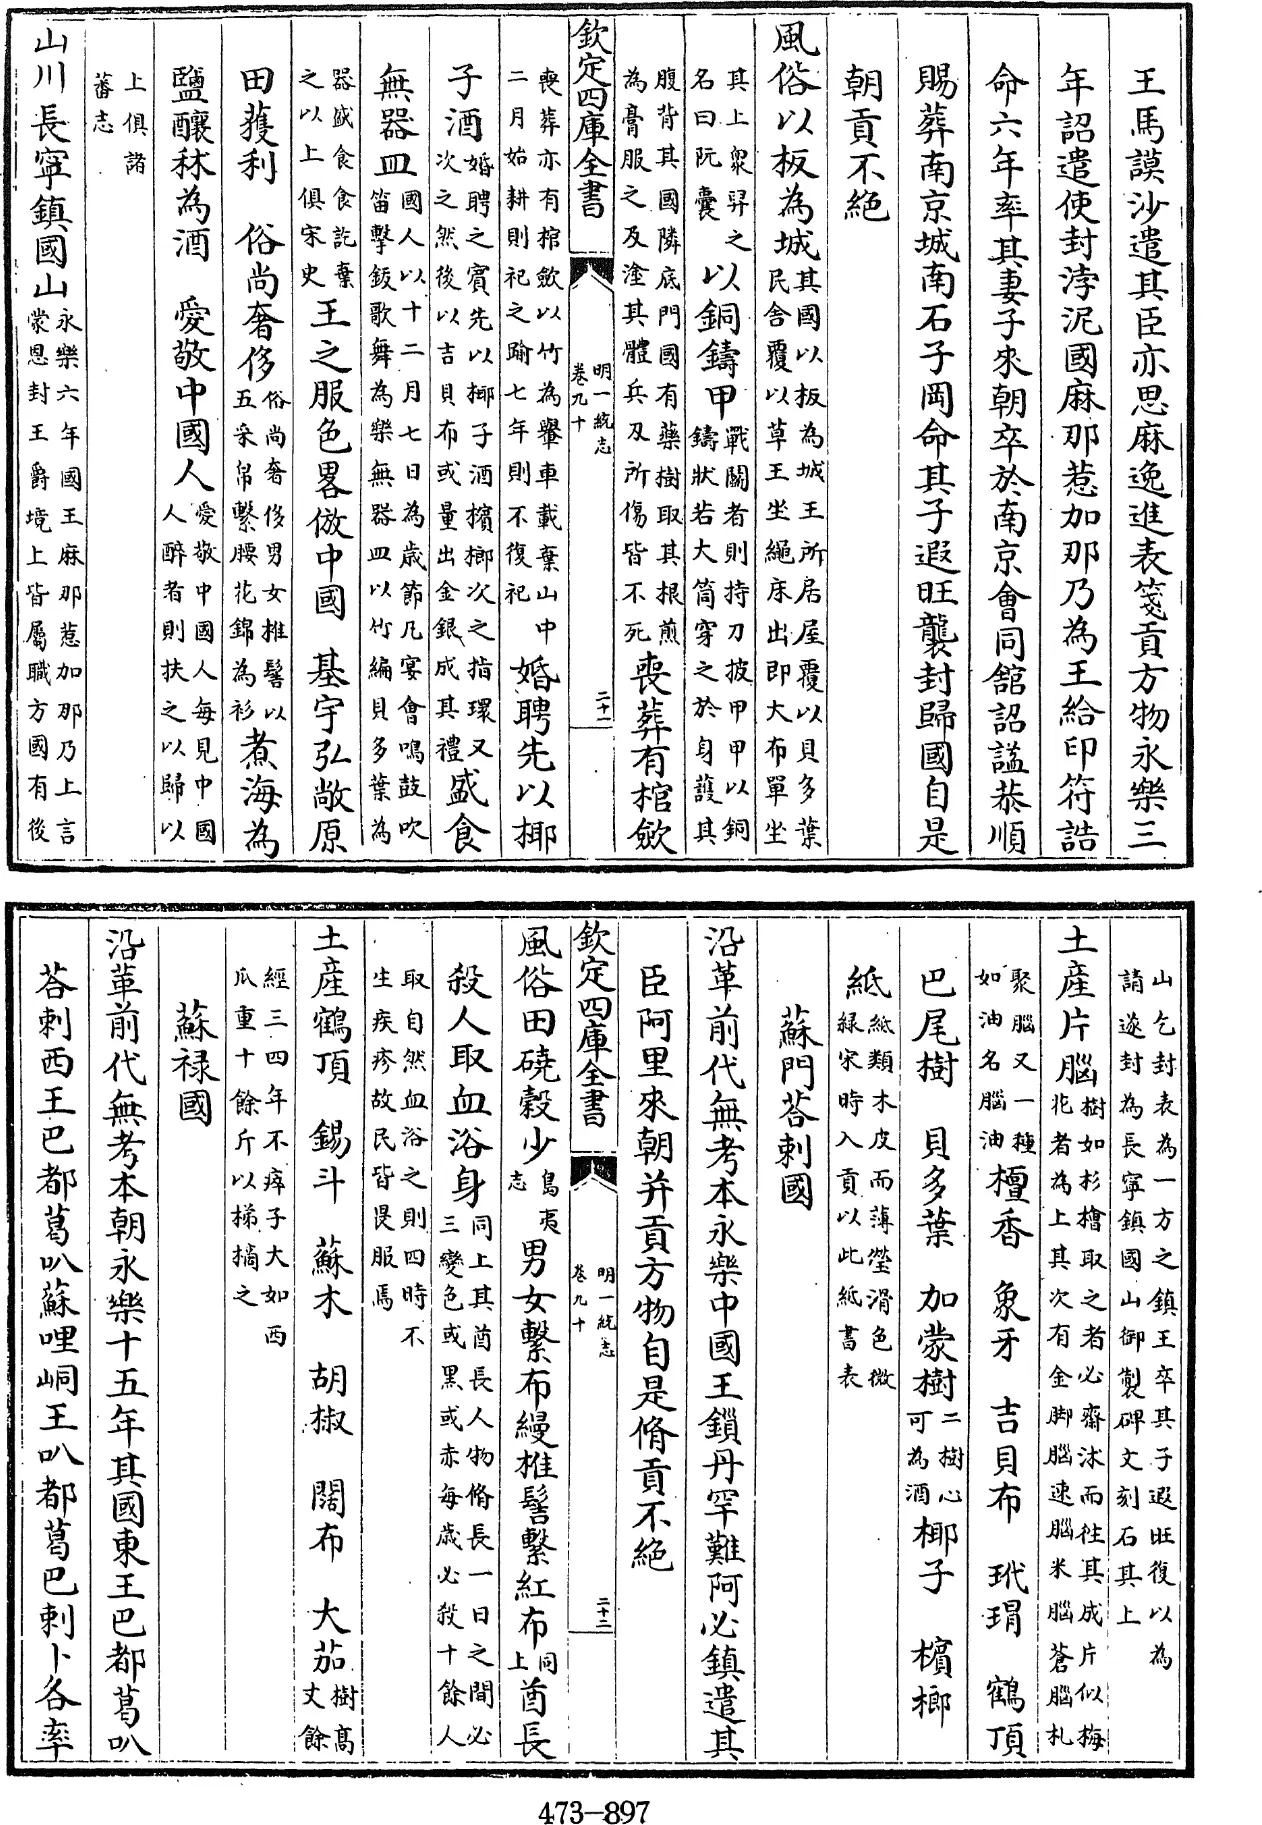 王馬謨沙遣其臣亦思麻逸進表箋貢方物永樂三
年詔遣使封浡泥國麻那惹加那乃為王給印符誥
命六年率其妻子來朝卒於南京會同舘詔謚恭順
賜葬南京城南石子岡命其子遐旺襲封歸國自是
朝貢不絶
風俗以板為城其國以板為城王所居屋覆以貝多葉民舍覆以草王坐繩床出即大布單坐
其上衆舁之名曰阮囊以銅鑄甲戰鬬者則持刀披甲甲以銅鑄狀若大筒穿之於身護其
腹背其國隣底門國有藥樹取其根煎為膏服之及塗其體兵刃所傷皆不死喪葬有棺歛
欽定四庫全書 明一統志 卷九十 二十一
喪葬亦有棺歛以竹為轝車載棄山中二月始耕則祀之踰七年則不復祀婚聘先以揶
子酒婚聘之賓先以揶子酒檳榔次之指環又次之然後以吉貝布或量出金銀成其禮盛食
無器皿國人以十二月七日為歲節凡宴會鳴鼓吹笛擊鈸歌舞為樂無器皿以竹編貝多葉為
器盛食食訖棄之以上俱宋史王之服色畧倣中國 基宇弘敞原
田獲利 俗尚奢侈俗尚奢侈男女椎髻以五采帛繫腰花錦為衫煮海為
鹽釀秫為酒 愛敬中國人愛敬中國人每見中國人醉者則扶之以歸以
上俱諸蕃志
山川長寧鎮國山永樂六年國王麻那惹加那乃上言蒙恩封王爵境上皆屬職方國有後
山乞封表為一方之鎮王卒其子遐旺復以為請遂封為長寧鎮國山御製碑文刻石其上
土産片腦樹如杉檜取之者必齋沐而往其成片似梅花者為上其次有金脚腦速腦米腦蒼腦札
聚腦又一種如油名腦油檀香 象牙 吉貝布 玳瑁 鶴頂
巴尾樹 貝多葉 加蒙樹二樹心可為酒椰子 檳榔
紙紙類木皮而薄瑩滑色微緑宋時入貢以此紙書表
蘇門荅剌國
沿革前代無考本永樂中國王鎖丹罕難阿必鎮遣其
臣阿里來朝并貢方物自是脩貢不絶
欽定四庫全書 明一統志 卷九十 二十二
風俗田磽穀少島夷志男女繫布縵椎髻繫紅布同上酋長
殺人取血浴身同上其酋長人物脩長一日之間必三變色或黑或赤每歲必殺十餘人
取自然血浴之則四時不生疾疹故民皆畏服焉
土産鶴頂 錫斗 蘇木 胡椒 闊布 大茄樹髙丈餘
經三四年不瘁子大如西瓜重十餘斤以梯摘之
蘇禄國
沿革前代無考本朝永樂十五年其國東王巴都葛叭
荅剌西王巴都葛叭蘇哩峒王叭都葛巴剌卜各率
473-897